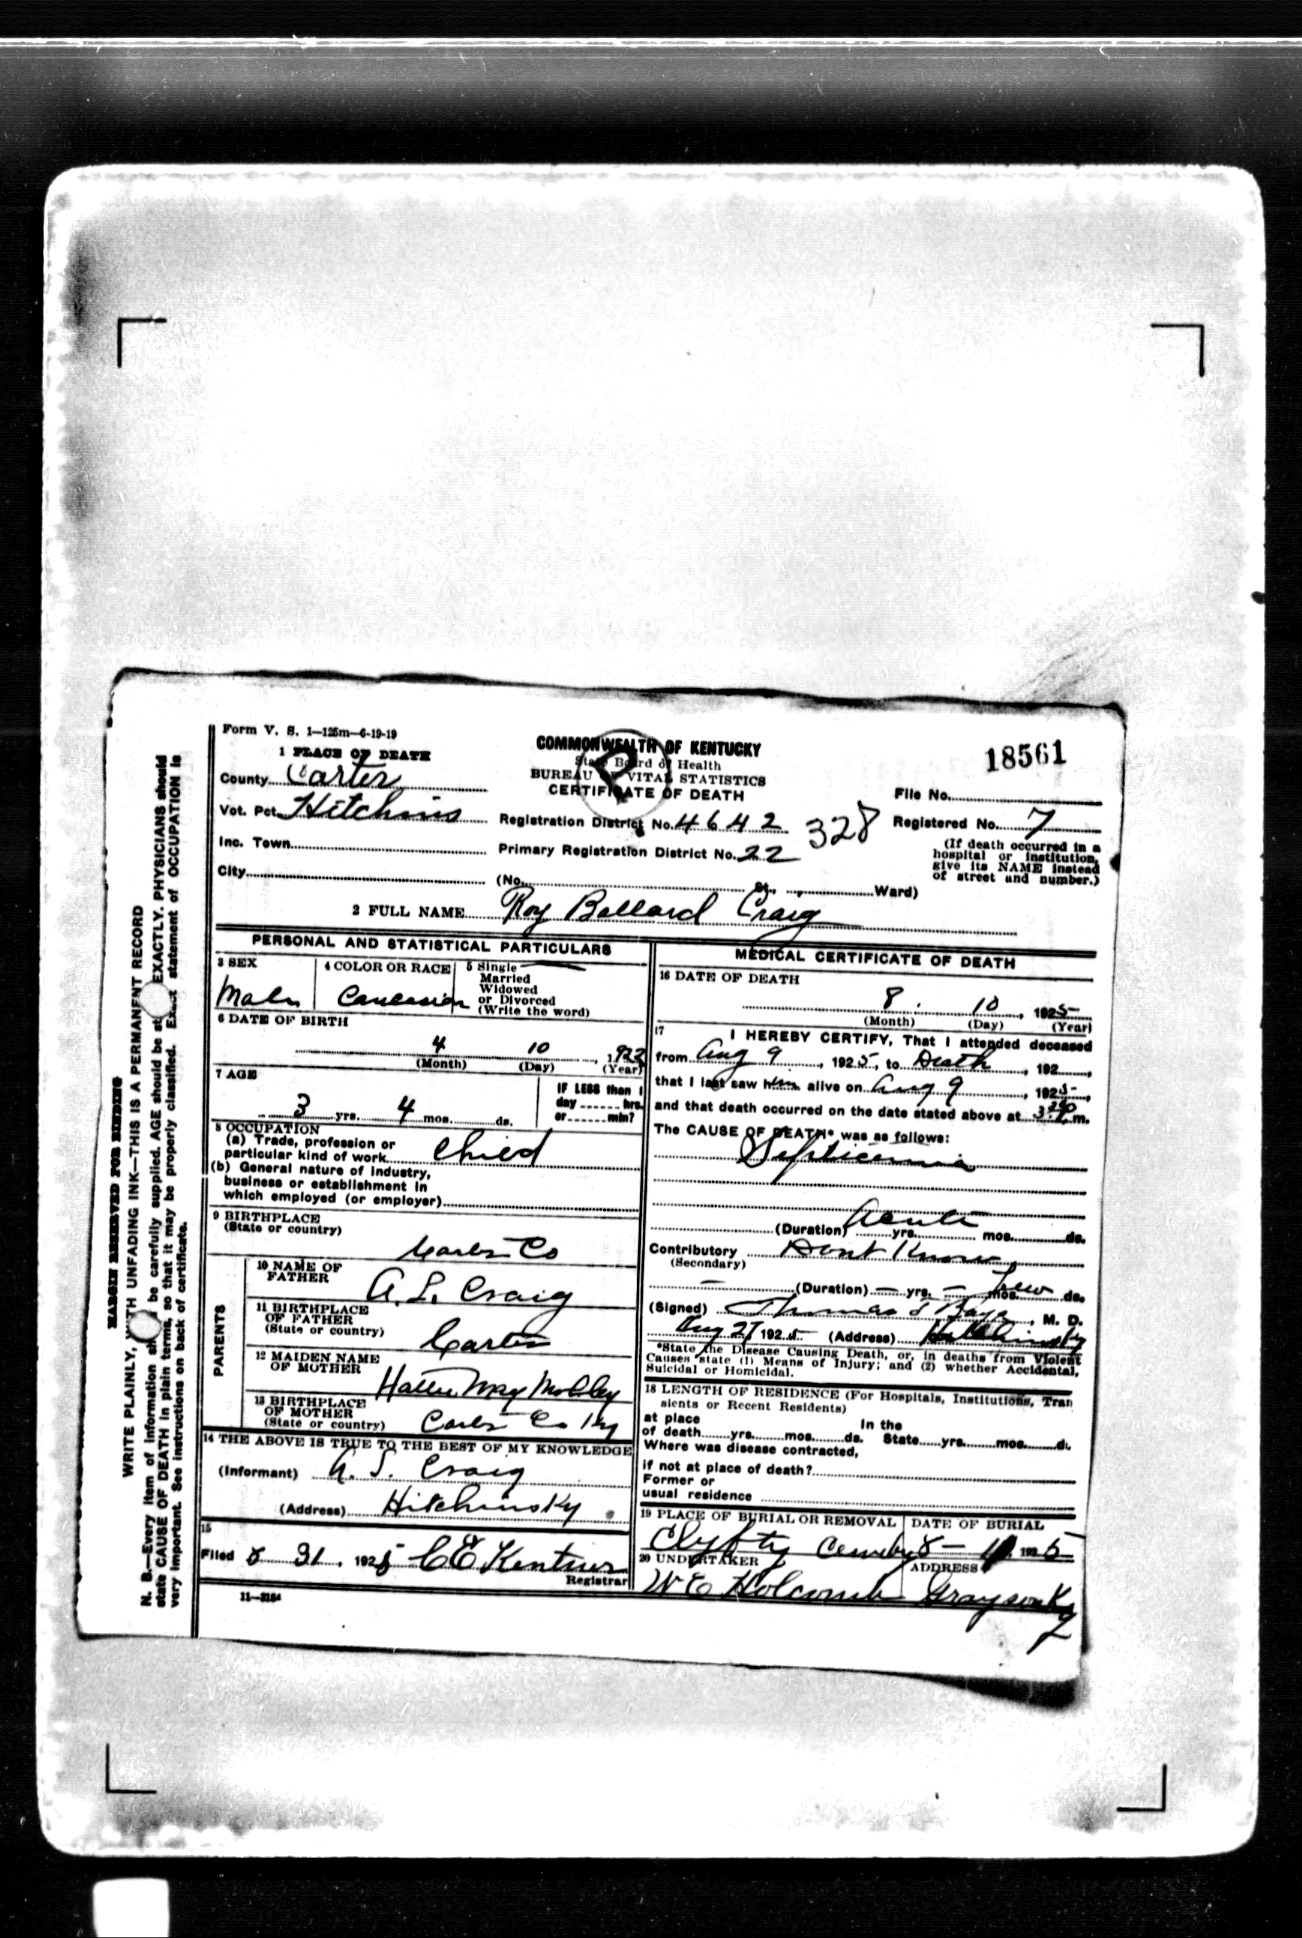 Form V. S. 1—125m—6-19-19
1 PLACE OF DEATH
County Carter
Vot. Pct. Hitchins
Inc. Town
City
COMMONWEALTH OF KENTUCKY
State Board of Health
BUREAU OF VITAL STATISTICS
CERTIFICATE OF DEATH
Registration District No. 4642 328
Primary Registration District No. 22
(No. St., Ward)
18561
File No.
Registered No. 7
(If death occurred in a
hospital or institution,
give its NAME instead
of street and number.)
2 FULL NAME Roy Ballard Craig
PERSONAL AND STATISTICAL PARTICULARS
3 SEX
Male
4 COLOR OR RACE
Caucasian
5 Single
Married
Widowed
or Divorced
(Write the word)
6 DATE OF BIRTH
4 10 , 1922
(Month) (Day) (Year)
7 AGE
3 yrs. 4 mos. ds.
IF LESS than 1
day hrs.
or min?
8 OCCUPATION
(a) Trade, profession or
particular kind of work Child
(b) General nature of industry,
business or establishment in
which employed (or employer)
9 BIRTHPLACE
(State or country)
Carter Co
PARENTS
10 NAME OF
FATHER
A. L. Craig
11 BIRTHPLACE
OF FATHER
(State or country)
Carter
12 MAIDEN NAME
OF MOTHER
Hattie May Mobley
13 BIRTHPLACE
OF MOTHER
(State or country)
Carter Co Ky
14 THE ABOVE IS TRUE TO THE BEST OF MY KNOWLEDGE
(Informant) Craig
(Address) Hitchins Ky
15
Filed 8 31, 1925 C E
Registrar
11—3184
MEDICAL CERTIFICATE OF DEATH
16 DATE OF DEATH
8 10 , 1925
(Month) (Day) (Year)
17 I HEREBY CERTIFY, That I attended deceased
from Aug 9 , 1925, to Death , 192 ,
that I last saw him alive on Aug 9 , 1925,
and that death occurred on the date stated above at 3 m.
The CAUSE OF DEATH* was as follows:
Septicemia
Acute
(Duration) yrs. mos. ds.
Contributory Dont Know
(Secondary)
(Duration) — yrs. — mos. few ds.
(Signed) Thomas , M. D.
Aug 27 1925 (Address) Hitchins Ky
*State the Disease Causing Death, or, in deaths from Violent
Causes state (1) Means of Injury; and (2) whether Accidental,
Suicidal or Homicidal.
18 LENGTH OF RESIDENCE (For Hospitals, Institutions, Tran
sients or Recent Residents)
at place In the
of death yrs. mos. ds. State yrs. mos. d.
Where was disease contracted,
if not at place of death?
Former or
usual residence
19 PLACE OF BURIAL OR REMOVAL DATE OF BURIAL
8— 1925
20 UNDERTAKER ADDRESS
W E Holcomb Grayson Ky
MARGIN RESERVED FOR BINDING
WRITE PLAINLY, WITH UNFADING INK—THIS IS A PERMANENT RECORD
N. B.—Every item of information should be carefully supplied. AGE should be stated EXACTLY. PHYSICIANS should
state CAUSE OF DEATH in plain terms, so that it may be properly classified. Exact statement of OCCUPATION is
very important. See instructions on back of certificate.